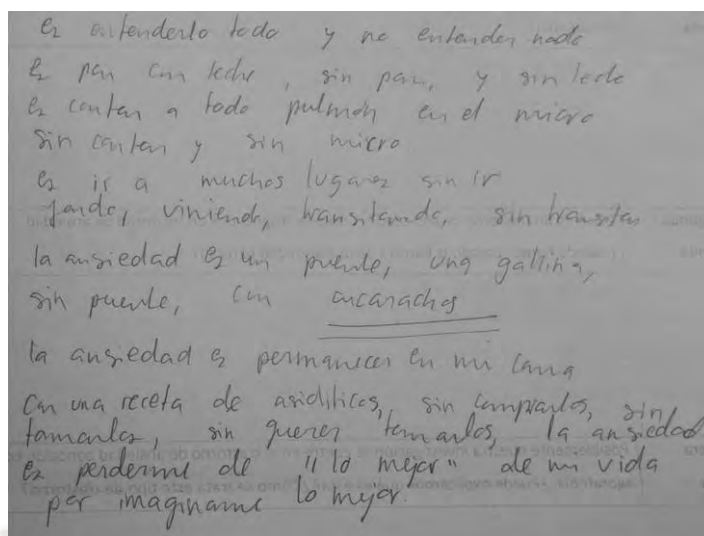 es entenderlo todo y no entender nada
es pan con leche, sin pan, y sin leche
es cantar a todo pulmón en el micro
sin cantar y sin micro
es ir a muchos lugares sin ir
yendo, viniendo, transitando, sin transitar
la ansiedad es un puente, una gallina,
sin puente, con cucarachas
la ansiedad es permanecer en mi cama
con una receta de ansiolíticos, sin comprarlos, sin
tomarlos, sin querer tomarlos, la ansiedad
es perderme de "lo mejor" de mi vida
por imaginarme lo mejor.